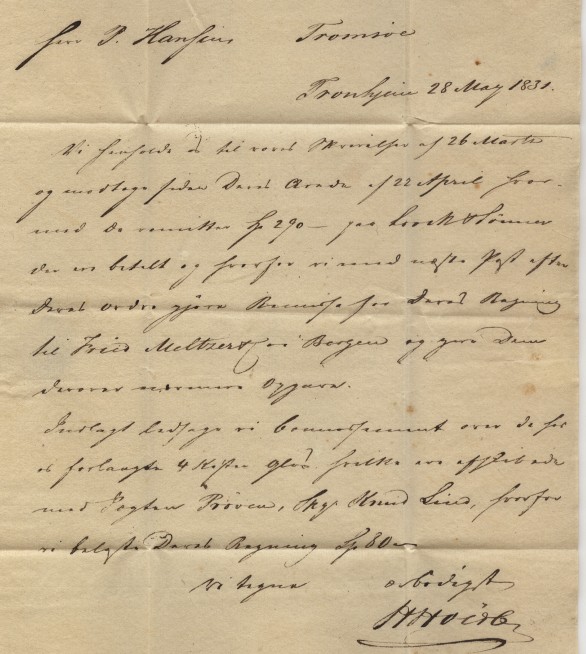 Herr P. Hansen, Tromsöe
Tronhjem 28 May 1831.
Vi henholde os til vores Skrivelse af 26 Marts
og modtoge siden Deres Ærede af 22 April hvor-
med De remitter Sp 290 — paa & Sönner
der ere betalt og hvorfor vi med næste Post efter
Deres Ordre gjöre Remisse for Deres Regning
til Fried Meltzer & Co i Bergen og give Dem
derover nærmere Opgave.
Indlagt ledsage vi Connossement over de hos
os forlangte 4 Kister Glas hvilke ere afskibede
med Jagten Pröven, Skp Knud Lind, hvorfor
vi belaste Deres Regning Sp 80 —
Vi tegne ærbödigst